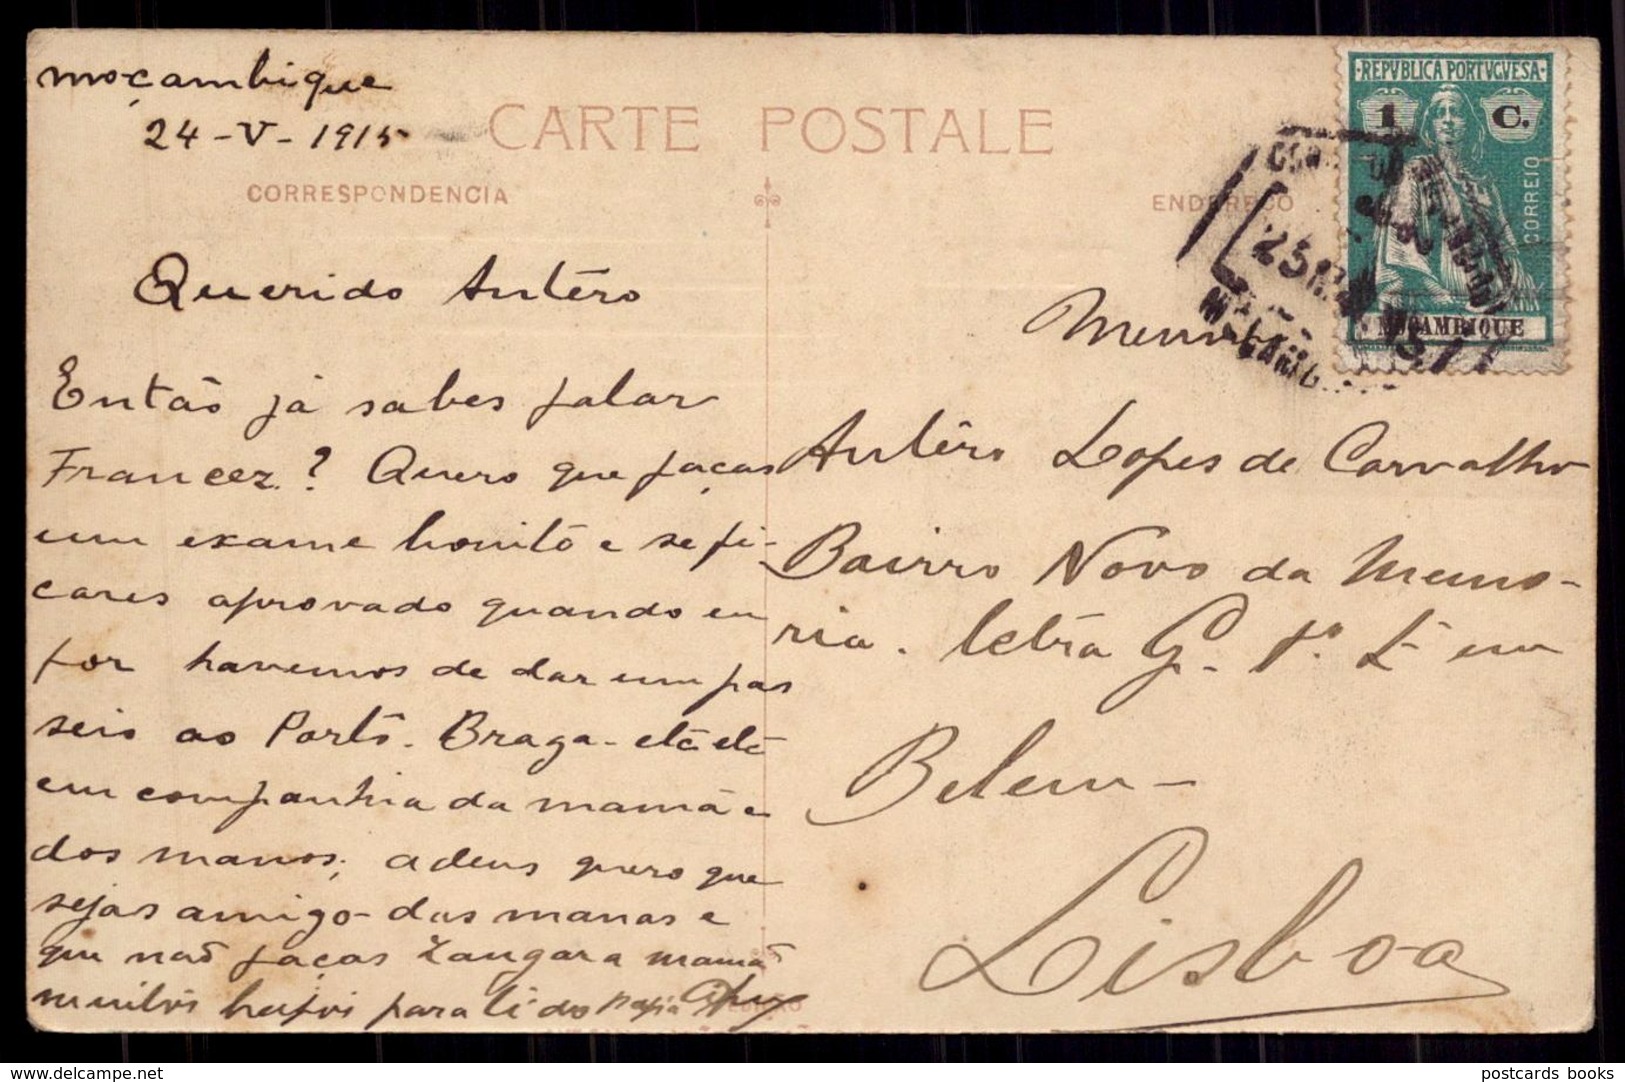 moçambique
24-V-1915
CARTE POSTALE
CORRESPONDENCIA
ENDEREÇO
REPVBLICA PORTVGVESA
1 C.
CORREIO
MOÇAMBIQUE
Querido Antéro
Então já sabes falar
Francez? Quero que faças
um exame bonito e se fi-
cares aprovado quando eu
for havemos de dar um pas
seio ao Porto. Braga. etc etc
em companhia da mamã e
dos manos; adeus quero que
sejas amigo das manas e
que não faças zangar a mamã
muitos beijos para ti do Papá
Menino
Antéro Lopes de Carvalho
Bairro Novo da Memo-
ria. letra G. 1º. E em
Belem-
Lisboa
postcards-delcampe.net
postcards books